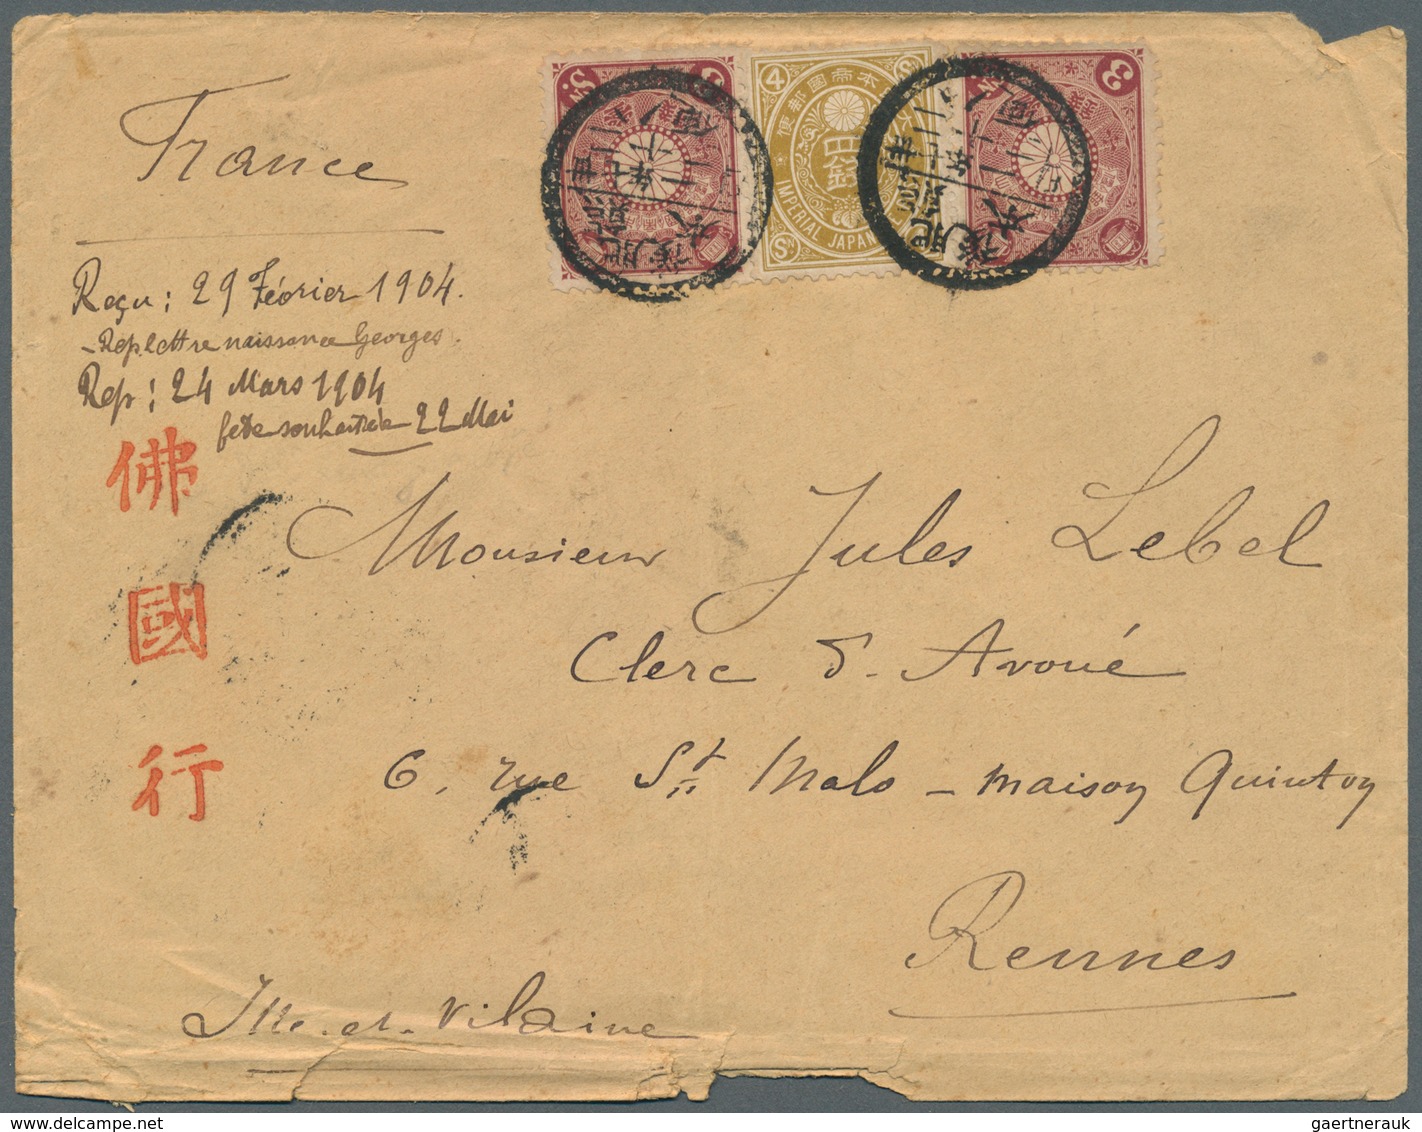 France
Reçu : 29 Février 1904.
- Rep. lettre naissance Georges.
Rep : 24 Mars 1904
fête souhaitée 22 Mai
佛國行
Monsieur Jules Lebel
Clerc d'Avoué
6, rue St Malo - maison Quintoy
Rennes
Ille-et-Vilaine
3
4
大日本帝國郵便
四錢
IMPERIAL JAPAN
Sn
3
肥後
gaertnerauk